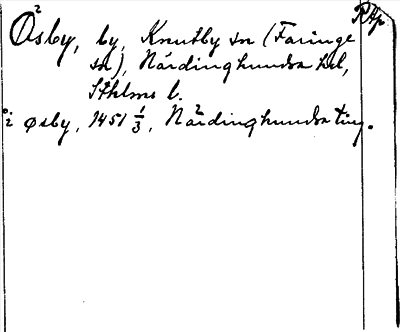 RAp
Ösby, by, Knutby sn (Faringe
sn), Närdinghundra hd,
Sthlms l.
i øsby, 1451 1/3, Närdinghundra ting.